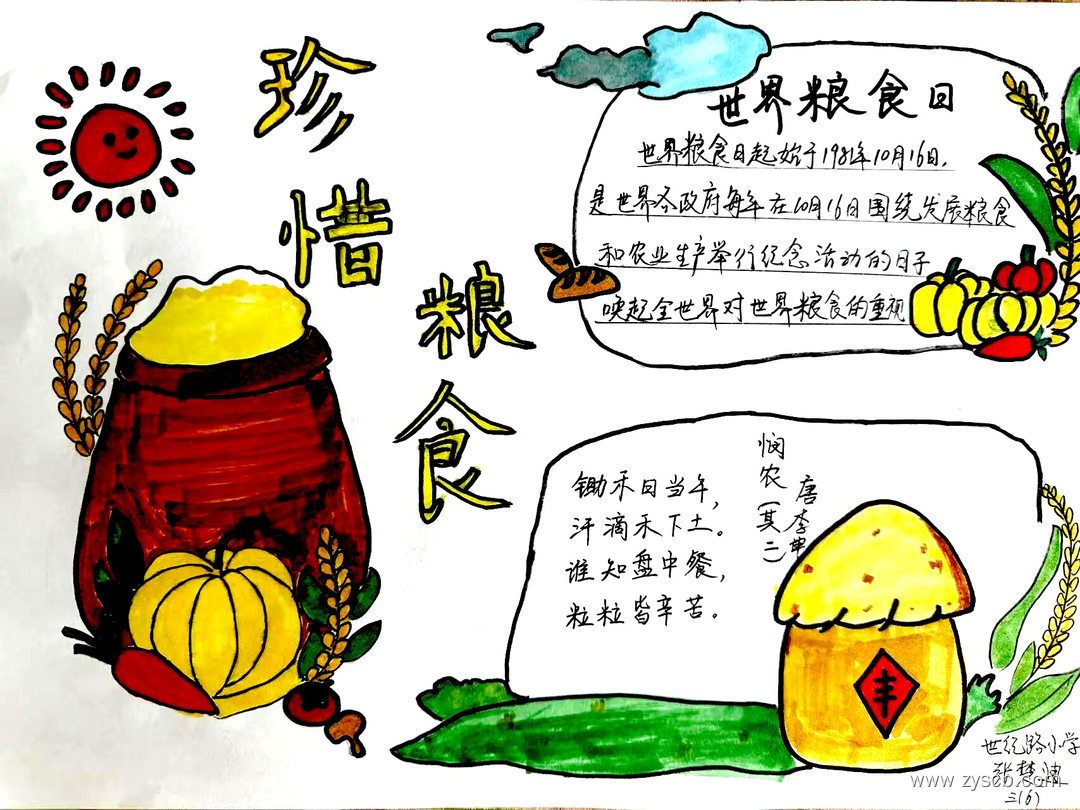 珍惜粮食
世界粮食日
世界粮食日起始于1981年10月16日,
是世界各政府每年在10月16日围绕发展粮食
和农业生产举行纪念活动的日子
唤起全世界对世界粮食的重视
悯农(其二)
唐 李绅
锄禾日当午,
汗滴禾下土。
谁知盘中餐,
粒粒皆辛苦。
丰
世纪路小学
三(6)
www.zyscb.com